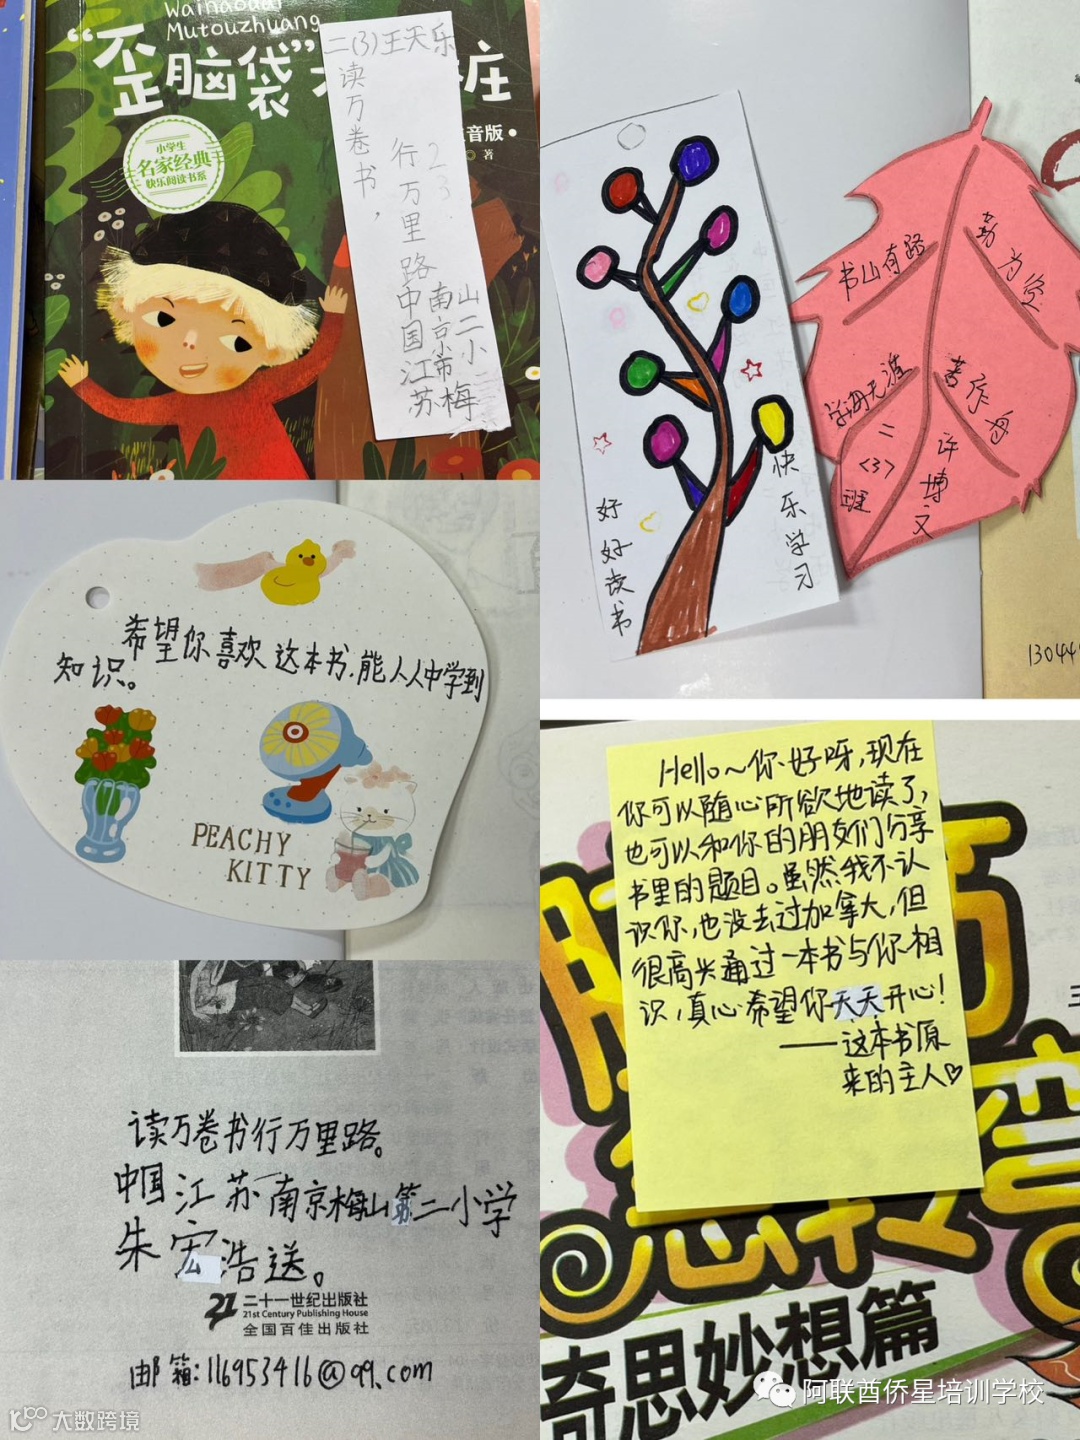 Wainaodai
Mutouzhuang
“歪脑袋”
庄
音版
著
小学生
名家经典
快乐阅读书系
二(3)王天乐
读万卷书，
行万里路
23.
中国江苏
南京市梅
山二小
好好读书
快乐学习
书山有路
勤为径
学海无涯
苦作舟
二
<3>
班
许博文
13044
希望你喜欢这本书.能从中学到
知识。
PEACHY
KITTY
Hello~你好呀,现在
你可以随心所欲地读了,
也可以和你的朋友们分享
书里的题目。虽然我不认
识你,也没去过加拿大,但
很高兴通过一本书与你相
识,真心希望你天天开心!
——这本书原
来的主人♡
奇思妙想篇
读万卷书行万里路。
中国江苏南京梅山第二小学
朱宏浩送。
二十一世纪出版社
21st Century Publishing House
全国百佳出版社
邮箱:116953416@qq.com
大数跨境
阿联酋侨星培训学校